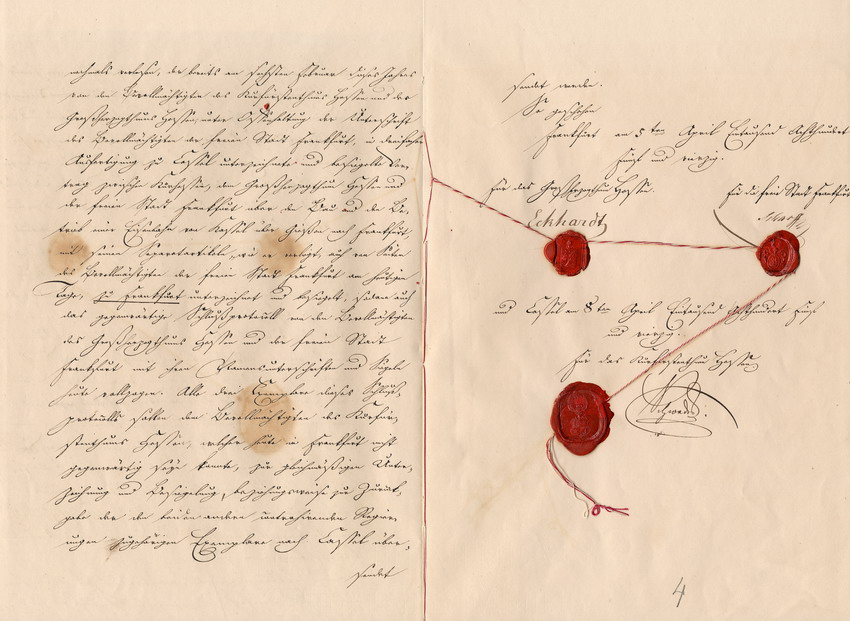 nochmals verlesen, der bereits am sechsten Februar dieses Jahres
von den Bevollmächtigten des Kurfürstenthums Hessen und des
Großherzogthums Hessen, unter Offenhaltung der Unterschrift
des Bevollmächtigten der freien Stadt Frankfurt, in dreifacher
Ausfertigung zu Cassel unterzeichnete und besiegelte Ver-
trag zwischen Kurhessen, dem Großherzogthum Hessen und
der freien Stadt Frankfurt über den Bau und den Be-
trieb einer Eisenbahn von Kassel über Gießen nach Frankfurt,
mit seinen Separatartikeln, wie er vorliegt, auch von Seiten
des Bevollmächtigten der freien Stadt Frankfurt am heutigen
Tage, zu Frankfurt unterzeichnet und besiegelt, sodann auch
das gegenwärtige Schlußprotocoll von den Bevollmächtigten
des Großherzogthums Hessen und der freien Stadt
Frankfurt mit ihren Namensunterschriften und Siegeln
heute vollzogen. Alle drei Exemplare dieses Schluß-
protocolls sollen dem Bevollmächtigten des Kurfür-
stenthums Hessen, welcher heute in Frankfurt nicht
gegenwärtig seyn konnte, zur gleichmäßigen Unter-
zeichnung und Besiegelung, beziehungsweise zur Zurück-
gabe der den beiden andern contrahirenden Regier-
ungen zugehörigen Exemplare nach Cassel über-
sendet
sendet werden.
So geschehen
Frankfurt am 5ten April Eintausend Achthundert
fünf und vierzig.
Für das Großherzogthum Hessen.
Für die freie Stadt Frankfurt
Eckhardt
und Cassel am 8ten April Eintausend Achthundert fünf
und vierzig.
Für das Kurfürstenthum Hessen
Schwedes.
4